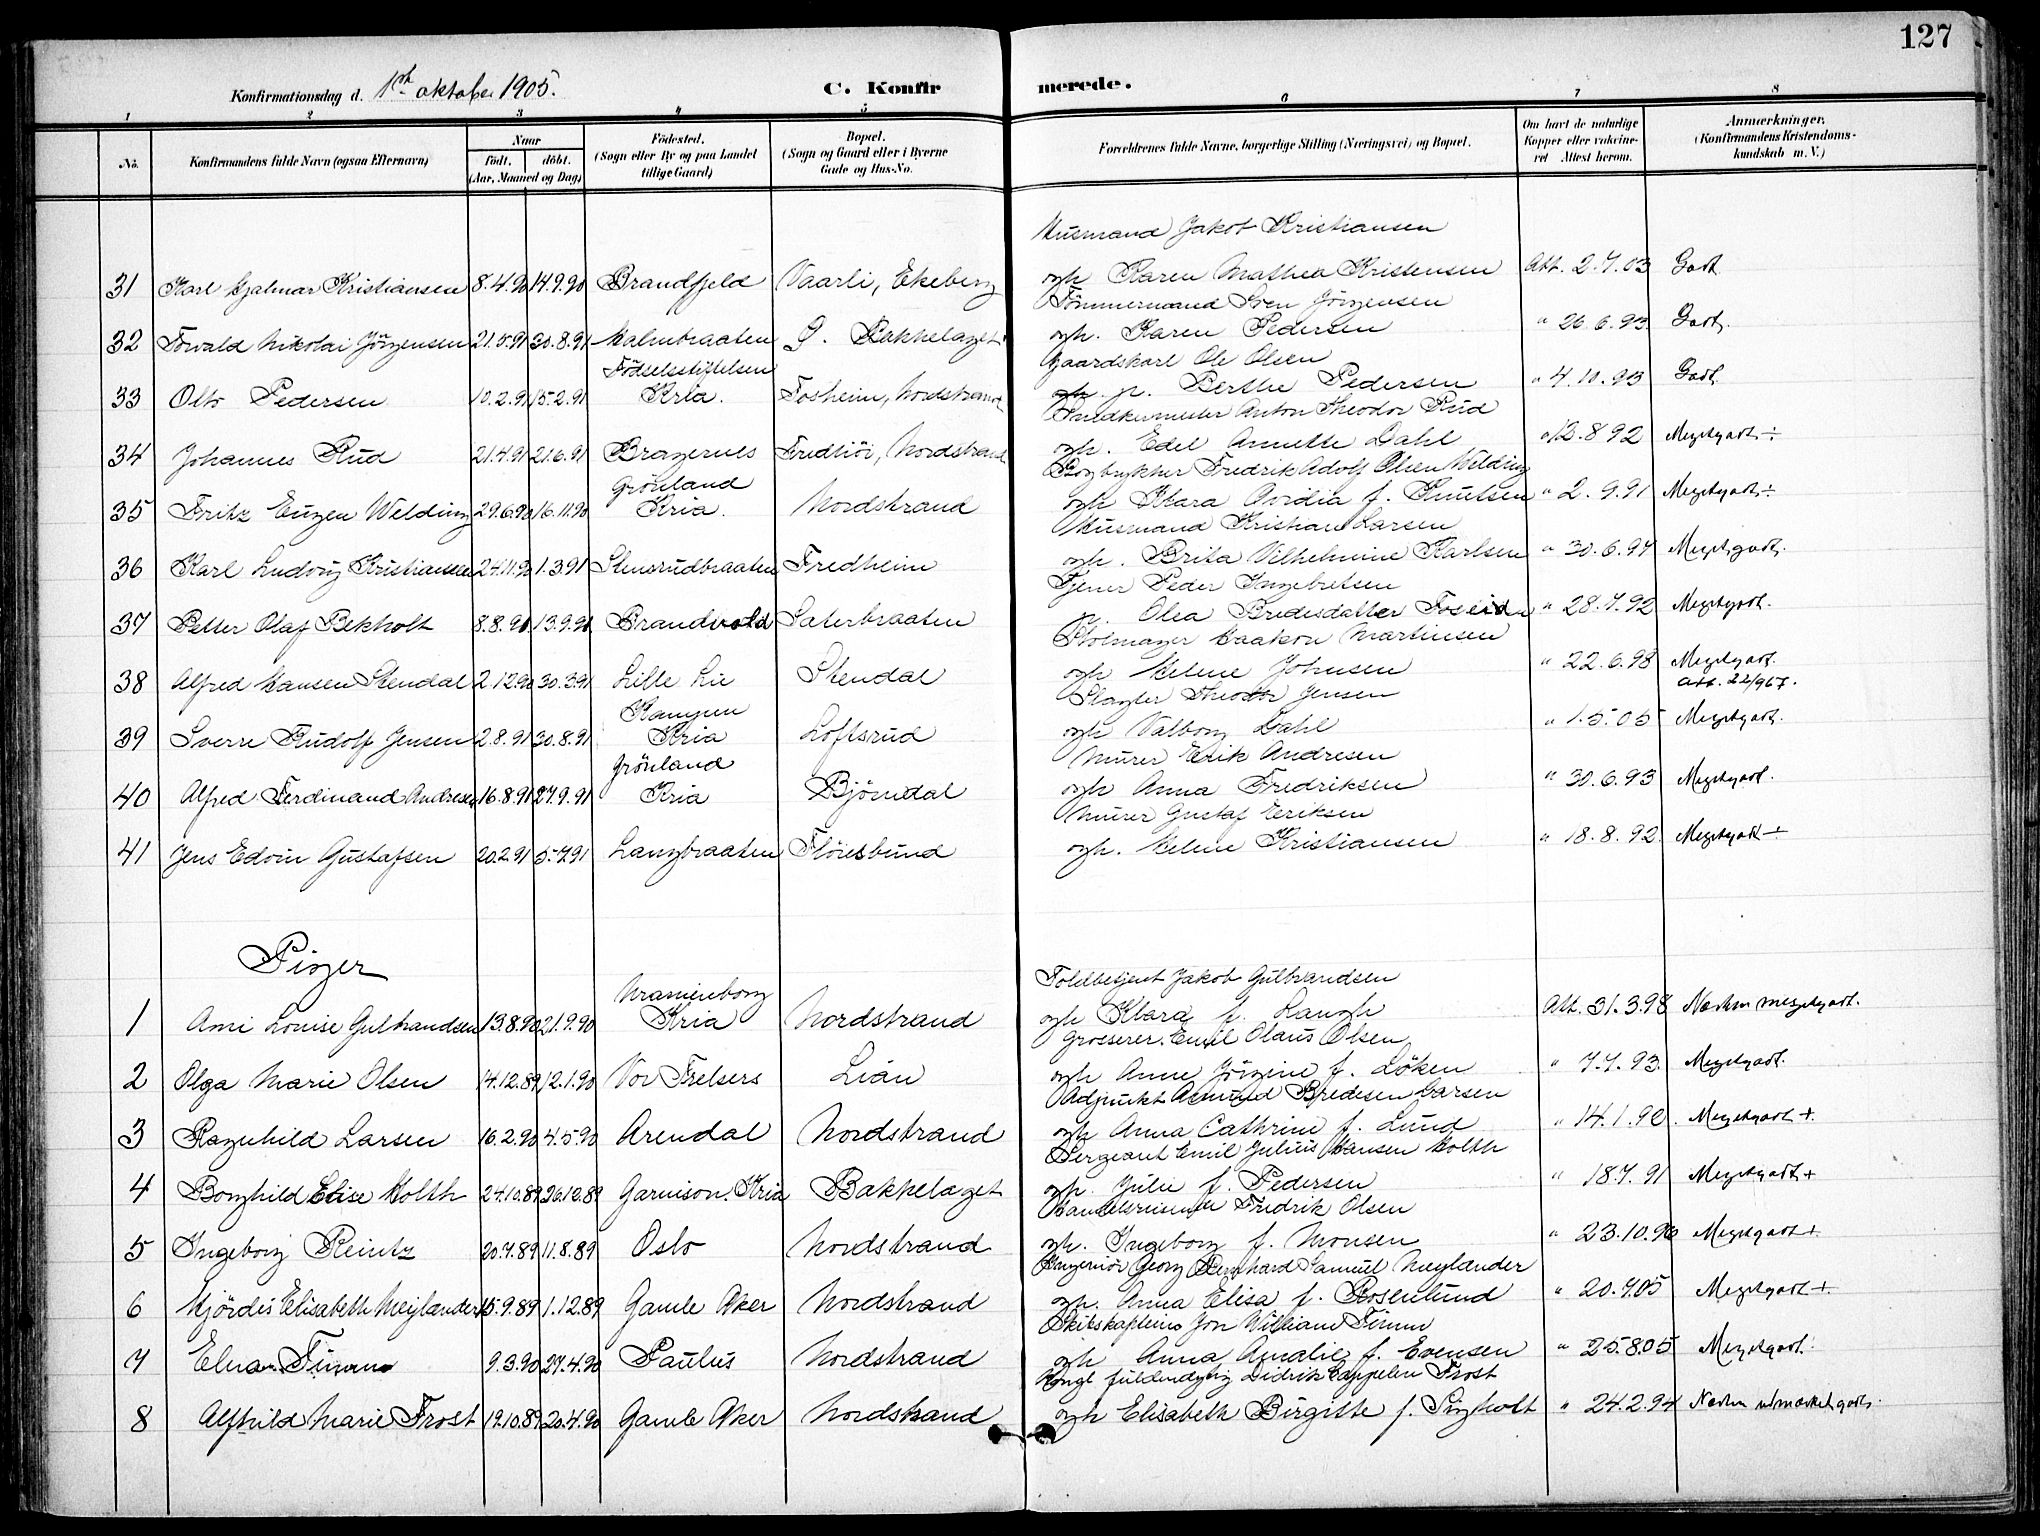 127
Konfirmationsdag d. 1ste oktober 1905.
C. Konfirmerede.
1 2 3 4 5 6 7 8
No. Konfirmandens fulde Navn (ogsaa Efternavn) Naar født. døbt. (Aar, Maaned og Dag) Fødested. (Sogn eller By og paa Landet tillige Gaard) Bopæl. (Sogn og Gaard eller i Byerne Gade og Hus-No. Forældrenes fulde Navne, borgerlige Stilling (Næringsvei) og Bopæl. Om havt de naturlige Kopper eller vakcineret Attest herom. Anmærkninger. (Konfirmandens Kristendomskundskab m. V.)
Husmand Jakob Kristiansen
31 Karl Hjalmar Kristiansen 8.4.90 14.9.90 Brandfjeld Vaarli, Ekeberg ogh Karen Mathea Kristensen Att. 2.7.03 Godt.
Tömmermand Sven Jörgensen
32 Torvald Nikolai Jörgensen 21.5.91 30.8.91 Malmbraaten Ö. Bakkelaget ogh. Karen Pedersen " 26.6.93. Godt.
Födselsstiftelsen Gaardskarl Ole Olsen
33 Otto Pedersen 10.2.91 15.2.91 Kria. Fosheim, Nordstrand p. Berthe Pedersen " 4.10.93 Godt.
Snedkermester Anton Theodor Rud
34 Johannes Rud 21.4.91 21.6.91 Bragernes Fredhöi, Nordstrand ogh. Edel Annette Dahl " 13.8.92 Megetgodt ÷
Grönland Bogtrykker Fredrik Adolf Olsen Welding
35 Fritz Eugen Welding 29.6.90 16.11.90 Kria. Nordstrand ogh Klara Ovidia f. Knutsen " 2.9.91 Megetgodt ÷
Husmand Kristian Larsen
36 Karl Ludvig Kristiansen 24.11.90 1.3.91 Stensrudbraaten Fredheim ogh. Brita Vilhelmine Karlsen " 30.6.94 Megetgodt.
Tjener Peder Ingebretsen
37 Petter Olaf Bekholt 8.8.90 13.9.90 Brandvold Saterbraaten p. Olea Bredesdatter Foseide " 28.7.92 Megetgodt.
Stolmager Haakon Martinsen
38 Alfred Hansen Stendal 2.12.90 30.3.91 Lille Lie Stendal ogh Helene Johnsen " 22.6.98 Megetgodt.
att. 22/967.
Kampen Slagter Theodor Jensen
39 Sverre Rudolf Jensen 2.8.91 30.8.91 Kria Loftsrud ogh Valborg Dahl " 1.5.05 Megetgodt.
Grönland Murer Erik Andresen
40 Alfred Ferdinand Andresen 16.8.91 27.9.91 Kria Björndal ogh Anna Fredriksen " 30.6.93 Megetgodt.
Murer Gustaf Eeriksen
41 Jens Edvin Gustafsen 20.2.91 5.7.91 Langbraaten Flöiesbund ogh. Helene Kristiansen " 18.8.92. Megetgodt ÷
Piger
Uranienborg Toldbetjent Jakob Gulbrandsen
1 Ami Louise Gulbrandsen 13.8.90 21.9.90 Kria Nordstrand ogh Klara f. Laugh Att. 31.3.98 Næsten megetgodt.
Grosserer Emil Olaus Olsen
2 Olga Marie Olsen 14.12.89 12.1.90 Vor Frelsers Lian ogh Anne Jörgine f. Löken " 7.7.93. Megetgodt.
Adjunkt Amund Bredesen Larsen
3 Ragnhild Larsen 16.2.90 4.5.90 Arendal Nordstrand ogh Anna Cathrine f. Lund " 14.1.92. Megetgodt +
Sergeant Emil Julius Hansen Holth
4 Borghild Elise Holth 24.10.89 26.12.89 Garnison. Kria Bakkelaget ogh. Julie f. Pedersen " 18.7.91 Megetgodt +
Handelsreisende Fredrik Olsen
5 Ingeborg Reintz 20.7.89 11.8.89 Oslo Nordstrand ogh. Ingeborg f. Monsen " 23.10.96 Megetgodt +
Ingeniör Georg Bernhard Samuel Meylander
6 Hjördis Elisabeth Meylander 15.9.89 1.12.89 Gamle Aker Nordstrand ogh. Anna Elisa f. Rosenlund " 20.7.05 Megetgodt +
Skibskaptein Jon William Finm
7 Elna Finm 9.3.90 27.4.90 Paulus Nordstrand ogh Anna Amalie f. Evensen " 25.8.05 Megetgodt.
Kongl fuldmægtig Didrik Cappelen Frost
8 Alfhild Marie Frost 19.10.89 20.4.90 Gamle Aker Nordstrand ogh Elisabeth Birgitte f. Pigholt " 24.2.94 Næsten udmærket godt.